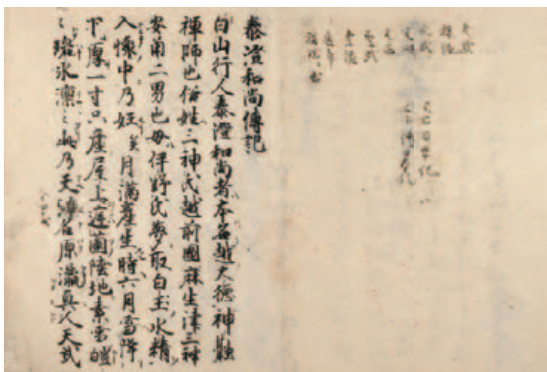 持統
文武
元明
聖武
孝謙
泰澄和尚傳記
白山行人泰澄和尚者本名越大德神融
禪師也俗姓三神氏越前國麻生津三神
安角二男也母伊野氏夢取白玉水精
入懷中乃妊矣月滿產生時六月雪降
下厚一寸只產屋上遶薗陸地素雪皚
〻瑞氷凛〻此乃天渟名原瀛真人天武